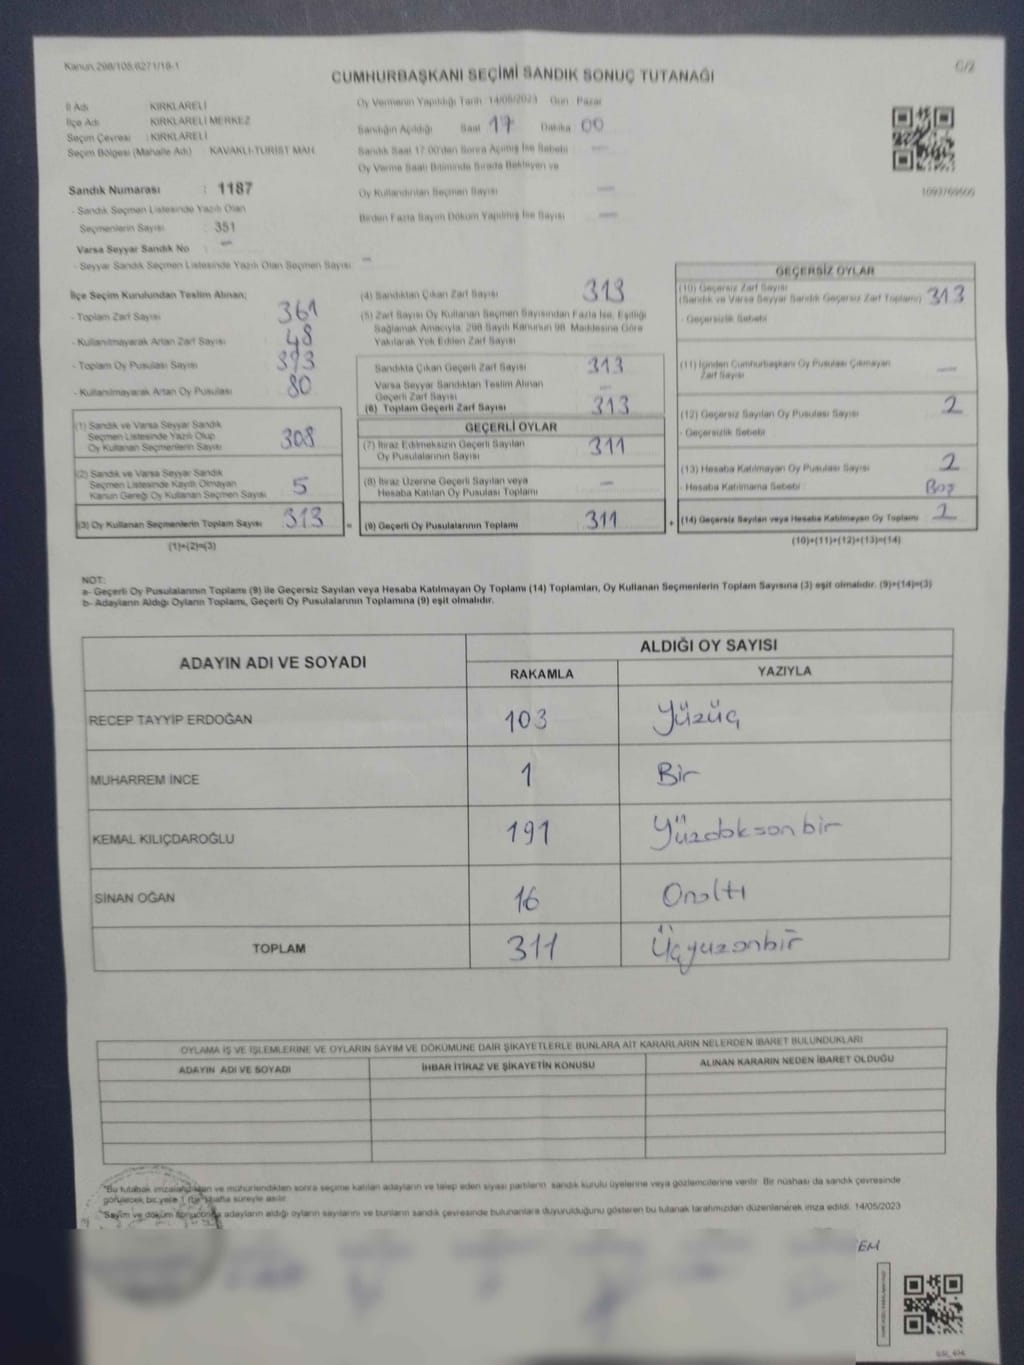 Kanun.298/105,6271/18-1
C/2
CUMHURBAŞKANI SEÇİMİ SANDIK SONUÇ TUTANAĞI
İl Adı KIRKLARELİ
İlçe Adı KIRKLARELİ MERKEZ
Seçim Çevresi : KIRKLARELİ
Seçim Bölgesi (Mahalle Adı) KAVAKLI-TURIST MAH.
Sandık Numarası : 1187
- Sandık Seçmen Listesinde Yazılı Olan
Seçmenlerin Sayısı : 351
Varsa Seyyar Sandık No : —
- Seyyar Sandık Seçmen Listesinde Yazılı Olan Seçmen Sayısı: —
Oy Vermenin Yapıldığı Tarih: 14/05/2023 Gün: Pazar
Sandığın Açıldığı Saat 17 Dakika 00
Sandık Saat 17:00'den Sonra Açılmış İse Sebebi : —
Oy Verme Saati Bitiminde Sırada Bekleyen ve
Oy Kullandırılan Seçmen Sayısı —
Birden Fazla Sayım Döküm Yapılmış İse Sayısı —
1093769500
İlçe Seçim Kurulundan Teslim Alınan;
- Toplam Zarf Sayısı 361
- Kullanılmayarak Artan Zarf Sayısı 48
- Toplam Oy Pusulası Sayısı 393
- Kullanılmayarak Artan Oy Pusulası 80
(1) Sandık ve Varsa Seyyar Sandık
Seçmen Listesinde Yazılı Olup
Oy Kullanan Seçmenlerin Sayısı 308
(2) Sandık ve Varsa Seyyar Sandık
Seçmen Listesinde Kayıtlı Olmayan
Kanun Gereği Oy Kullanan Seçmen Sayısı 5
(3) Oy Kullanan Seçmenlerin Toplam Sayısı 313 =
(1)+(2)=(3)
(4) Sandıktan Çıkan Zarf Sayısı 313
(5) Zarf Sayısı Oy Kullanan Seçmen Sayısından Fazla İse, Eşitliği
Sağlamak Amacıyla, 298 Sayılı Kanunun 98. Maddesine Göre
Yakılarak Yok Edilen Zarf Sayısı
Sandıkta Çıkan Geçerli Zarf Sayısı 313
Varsa Seyyar Sandıktan Teslim Alınan
Geçerli Zarf Sayısı —
(6) Toplam Geçerli Zarf Sayısı 313
GEÇERLİ OYLAR
(7) İtiraz Edilmeksizin Geçerli Sayılan
Oy Pusulalarının Sayısı 311
(8) İtiraz Üzerine Geçerli Sayılan veya
Hesaba Katılan Oy Pusulası Toplamı —
(9) Geçerli Oy Pusulalarının Toplamı 311 +
GEÇERSİZ OYLAR
(10) Geçersiz Zarf Sayısı
(Sandık ve Varsa Seyyar Sandık Geçersiz Zarf Toplamı) 313
- Geçersizlik Sebebi
(11) İçinden Cumhurbaşkanı Oy Pusulası Çıkmayan
Zarf Sayısı —
(12) Geçersiz Sayılan Oy Pusulası Sayısı 2
- Geçersizlik Sebebi
(13) Hesaba Katılmayan Oy Pusulası Sayısı 2
- Hesaba Katılmama Sebebi : Boş
(14) Geçersiz Sayılan veya Hesaba Katılmayan Oy Toplamı 2
(10)+(11)+(12)+(13)=(14)
NOT:
a- Geçerli Oy Pusulalarının Toplamı (9) ile Geçersiz Sayılan veya Hesaba Katılmayan Oy Toplamı (14) Toplamları, Oy Kullanan Seçmenlerin Toplam Sayısına (3) eşit olmalıdır. (9)+(14)=(3)
b- Adayların Aldığı Oyların Toplamı, Geçerli Oy Pusulalarının Toplamına (9) eşit olmalıdır.
ADAYIN ADI VE SOYADI ALDIĞI OY SAYISI
RAKAMLA YAZIYLA
RECEP TAYYİP ERDOĞAN 103 Yüzüç
MUHARREM İNCE 1 Bir
KEMAL KILIÇDAROĞLU 191 Yüzdoksonbir
SİNAN OĞAN 16 Onaltı
TOPLAM 311 Üçyüzonbir
OYLAMA İŞ VE İŞLEMLERİNE VE OYLARIN SAYIM VE DÖKÜMÜNE DAİR ŞİKAYETLERLE BUNLARA AİT KARARLARIN NELERDEN İBARET BULUNDUKLARI
ADAYIN ADI VE SOYADI İHBAR İTİRAZ VE ŞİKAYETİN KONUSU ALINAN KARARIN NEDEN İBARET OLDUĞU
*Bu tutanak imzalandıktan ve mühürlendikten sonra seçime katılan adayların ve talep eden siyasi partilerin sandık kurulu üyelerine veya gözlemcilerine verilir. Bir nüshası da sandık çevresinde
görülecek bir yere 1 (bir) hafta süreyle asılır.
*Sayım ve döküm sonucunda adayların aldığı oyların sayılarını ve bunların sandık çevresinde bulunanlara duyurulduğunu gösteren bu tutanak tarafımızdan düzenlenerek imza edildi. 14/05/2023
EM